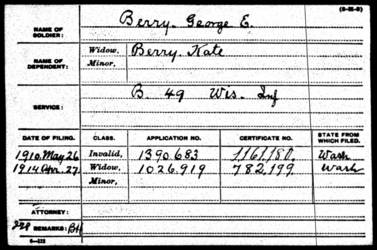 (3-35-8)
NAME OF SOLDIER: Berry, George E.
NAME OF DEPENDENT: Widow, Berry, Kate
Minor,
SERVICE: B. 49 Wis. Inf
DATE OF FILING. CLASS. APPLICATION NO. CERTIFICATE NO. STATE FROM WHICH FILED.
1910, May 26 Invalid, 1390.683 1161180. Wash
1914 Apr. 27. Widow, 1026.919 782,199 Wash
Minor,
ATTORNEY:
REMARKS: